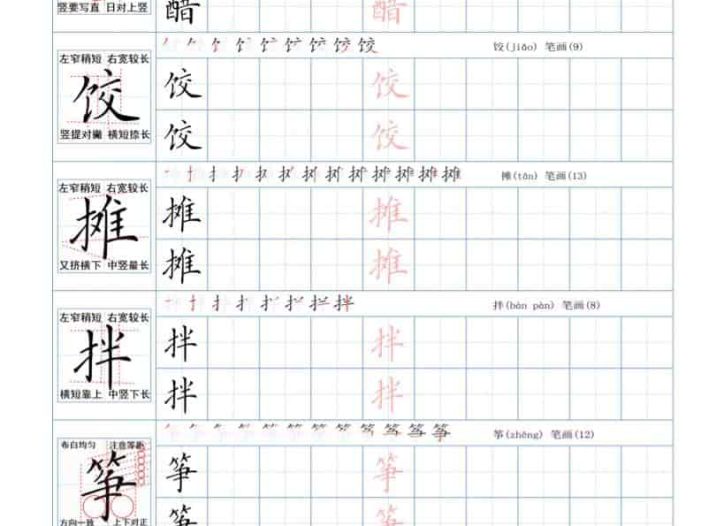 竖要写直 日对上竖
醋 醋
左窄稍短 右宽较长
饺
竖提对撇 横短捺长
饺(jiǎo) 笔画(9)
饺 饺
饺 饺
左窄稍短 右宽较长
摊
又挤横下 中竖最长
摊(tān) 笔画(13)
摊 摊
摊 摊
左窄稍短 右宽较长
拌
横短靠上 中竖下长
拌(bàn pàn) 笔画(8)
拌 拌
拌 拌
布白均匀 注意等距
筝
方向一致 上下对正
筝(zhēng) 笔画(12)
筝 筝
筝 筝